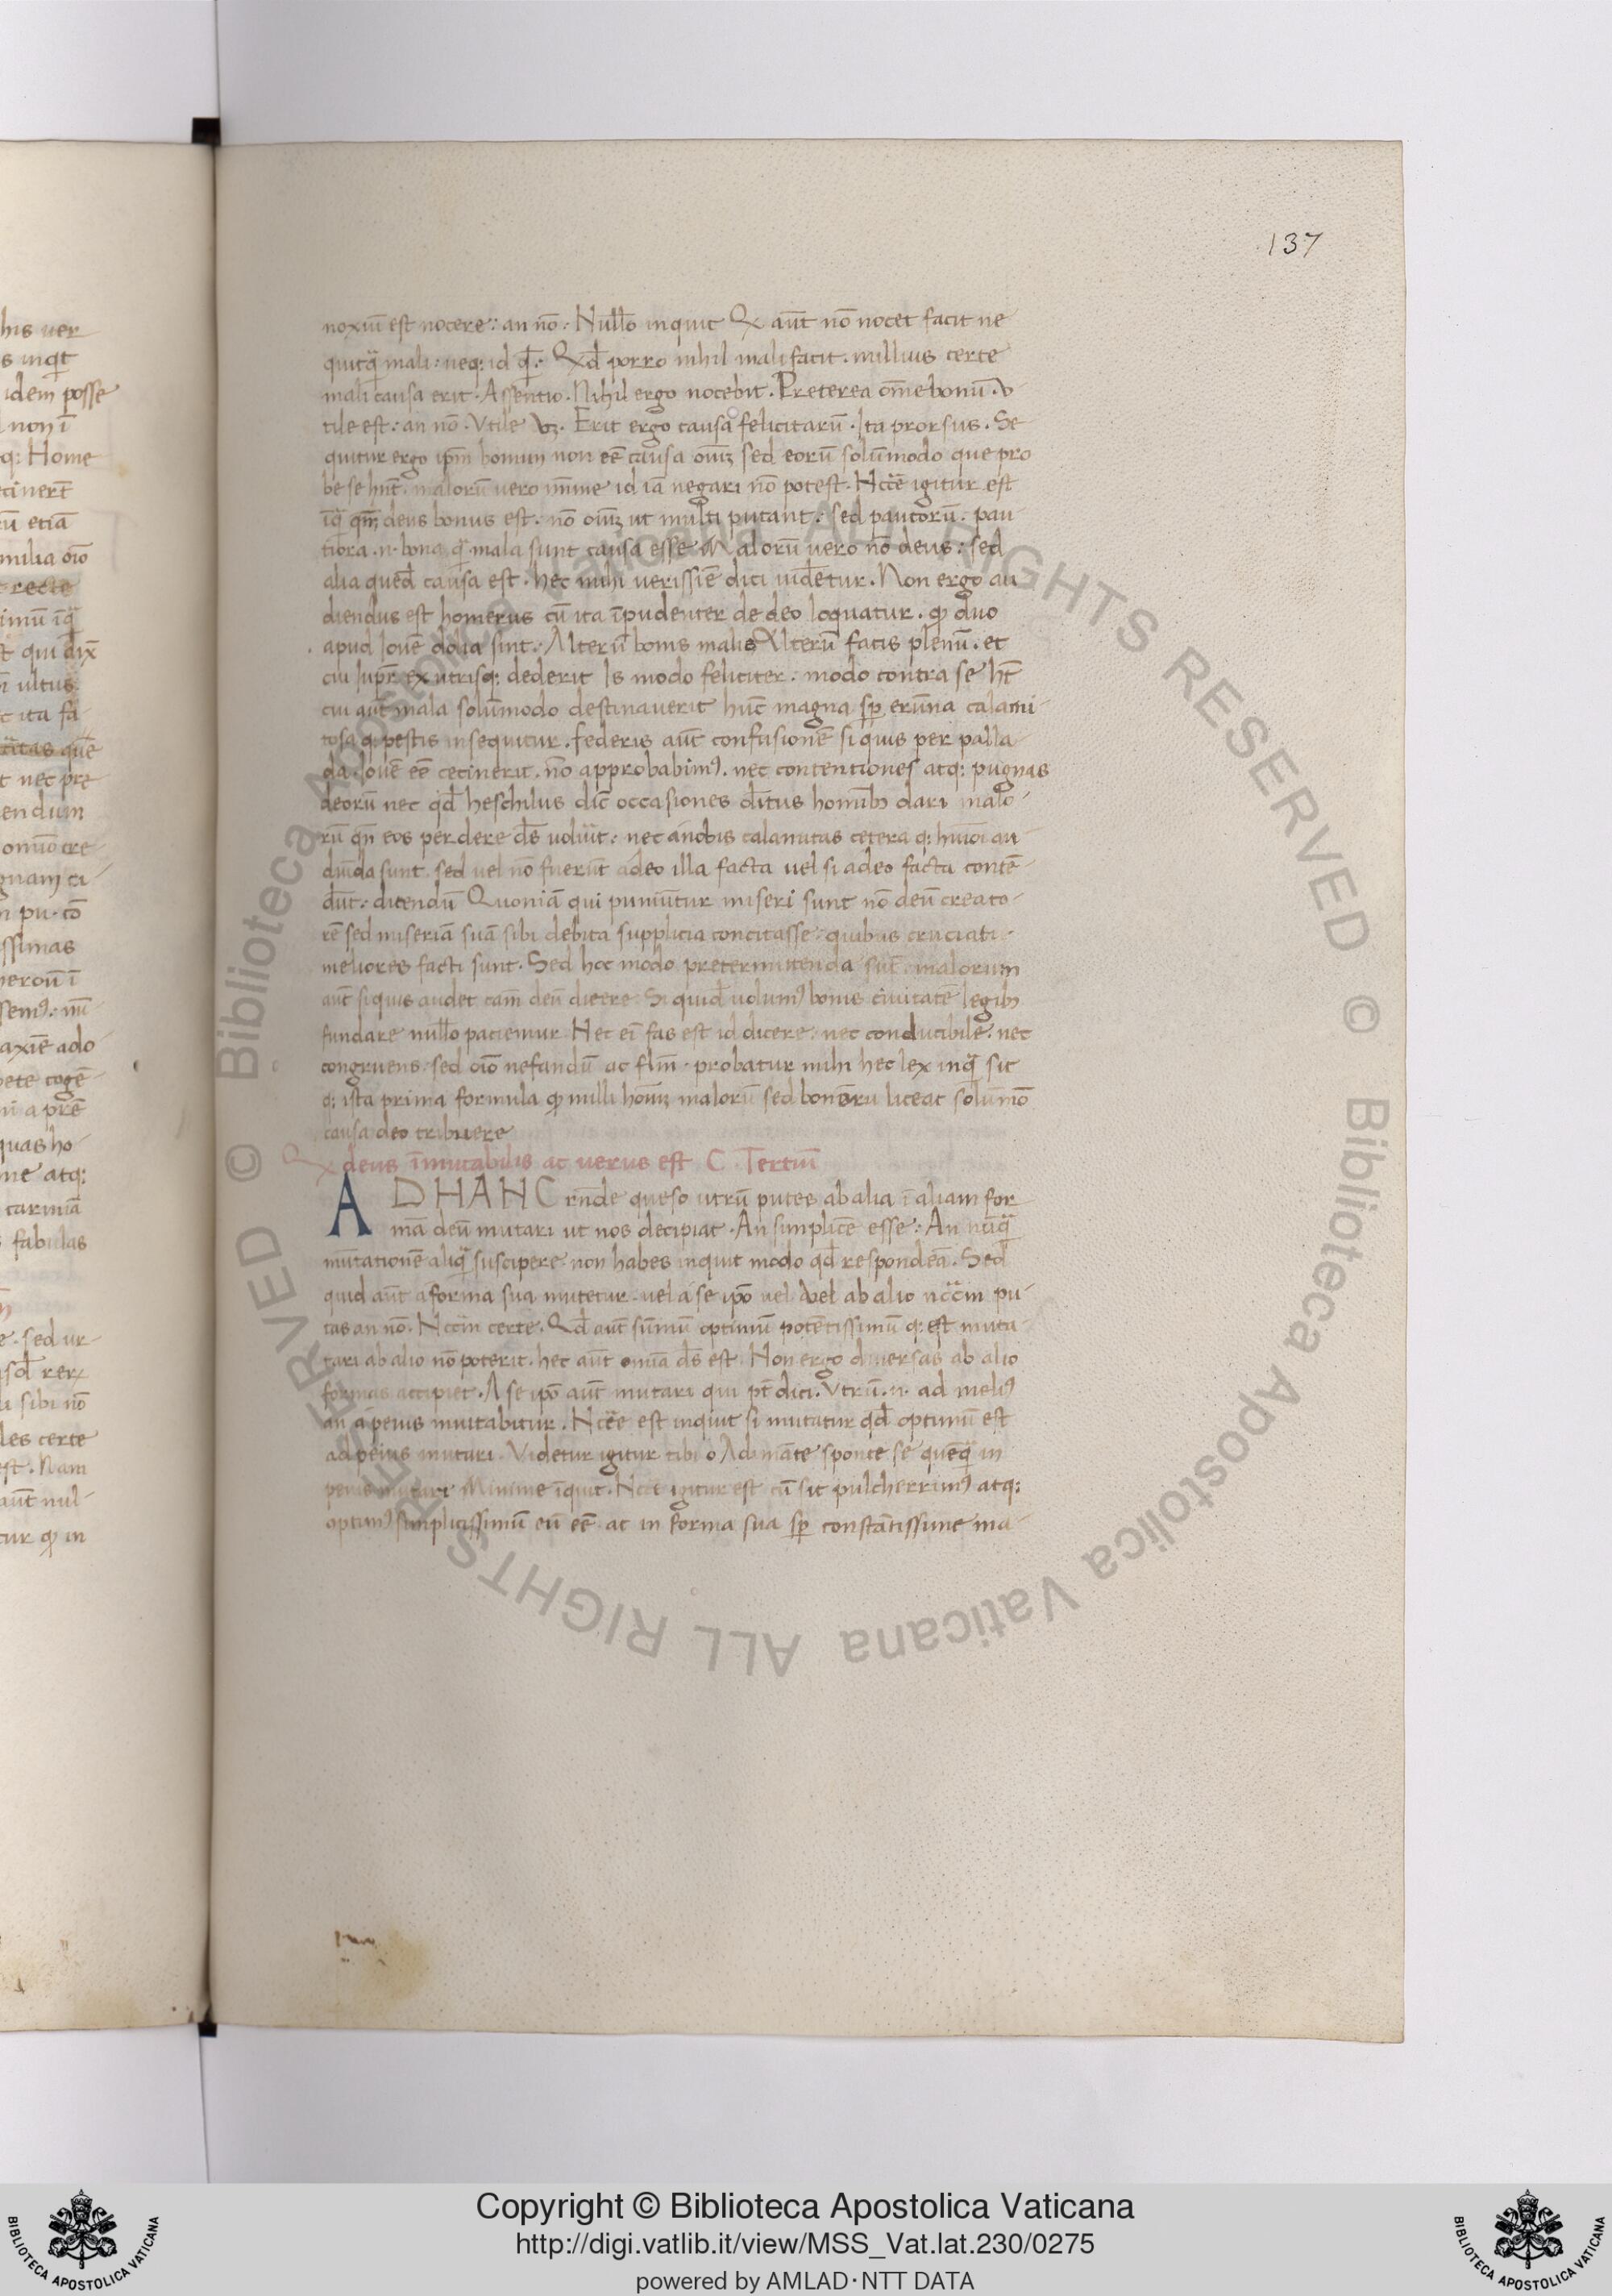 137
noxiū est nocere: an nō. Nullo inquit Qx aūt nō nocet facit ne
quitq̄ mali: neq; id q̄. Qd̄ porro nihil mali facit. nullius certe
mali causa erit. Assentio. Nihil ergo nocebit. Preterea om̄e bonū. v
tile est: an nō. Vtile vꝫ. Erit ergo causa felicitarū. Ita prorsus. Se
quitur ergo ip̄m bonum non eē causa oīuꝫ sed eorū solūmodo que pro
be se hn̄t. malorū vero mīme id iā negari nō potest. Nccē igitur est
īq̄ qm̄ deus bonus est. nō oīuꝫ ut multi putant: sed paucorū. pau
tiora .n. bona q̄ mala sunt causa esse Malorū vero nō deus: sed
alia qued̄ causa est. hec mihi verissīe dici uidetur. Non ergo au
diendus est homerus cū ita īpudenter de deo loquatur. ꝙ duo
apud Iouē dolia sint. Alterū bonis malis Alterū fatis plenū. et
cui Iup̄r ex utrisq; dederit Is modo feliciter. modo contra se h̄t
cui aūt mala solūmodo destinauerit hūc magna sp̄ erūna calami
tosa q; pestis insequitur. federis aūt confusionē si quis per palla
da Iouē eē cecinerit. nō approbabimꝰ. nec contentiones atq; pugnas
deorū nec qd̄ heschilus dic̄ occasiones dītus homībꝫ dari malo
rū qn̄ eos perdere ds̄ voluīt. nec a nobis calamitas cetera q; huiōi au
diēda sunt. sed vel nō fuerūt a deo illa facta vel si a deo facta contē
dūt. dicendū Quoniā qui puniūtur miseri sunt nō deū creato
rē sed miseriā suā sibi debita supplicia concitasse: quibus cruciati
meliores facti sunt. Sed hoc modo pretermittenda sūt. malorum
aūt si quis audet cām deū dicere. Si quid volumꝰ bonis ciuitatē legibꝫ
fundare nullo patiemur Nec eī fas est id dicere. nec conducibile. nec
congruens. sed oīo nefandū ac flm̄. probatur mihi hec lex inq̄ sit
q; ista prima formula ꝙ nulli hoīuꝫ malorū sed bonorū liceat solūmō
causa deo tribuere
Qx deus īmutabilis ac verus est C. Tertiū
AD HANC rn̄de queso utrū putes ab alia ī aliam for
mā deū mutari ut nos decipiat. An simplicē esse: An nūq̄
mutationē aliq̄ suscipere. non habes inquit modo qd̄ respondeā. Sed
quid aūt a forma sua mutetur. vel a se ip̄o vel vel ab alio nccm̄ pu
tas an nō. Nccm̄ certe. Qd̄ aūt sūmū optimū potētissimū q; est muta
tari ab alio nō poterit. hec aūt omīa ds̄ est. Non ergo diuersas ab alio
formas accipiet. A se ip̄o aūt mutari qui pt̄ dici. Vtrū .n. ad meliꝰ
an a peius mutabitur. Nccē est inquit si mutatur qd̄ optimū est
ad peius mutari. Videtur igitur tibi o Adimāte sponte se quēq̄ in
peius mutari Minime īquit. Nccē igitur est cū sit pulcherrimꝰ atq;
optimꝰ simplicissimū eū eē. ac in forma sua sp̄ constātissime ma
Copyright © Biblioteca Apostolica Vaticana
http://digi.vatlib.it/view/MSS_Vat.lat.230/0275
powered by AMLAD·NTT DATA